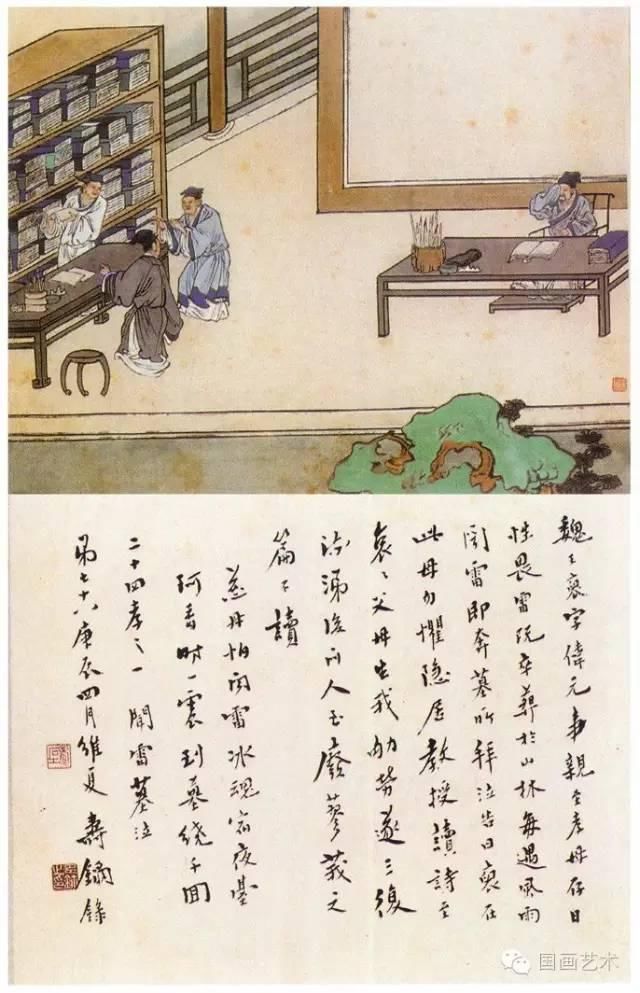 魏王裒字偉元事親至孝母存日
性畏雷既卒葬於山林每遇風雨
聞雷即奔墓所拜泣告曰裒在
此母勿懼隐居教授讀詩至
哀〻父母生我劬勞遂三復
流涕後門人至廢蓼莪之
篇不讀
慈母怕聞雷冰魂宿夜臺
阿香時一震到墓繞千囬
二十四孝之一 聞雷墓泣
弟七十八庚辰四月維夏 壽鑈錄
国画艺术